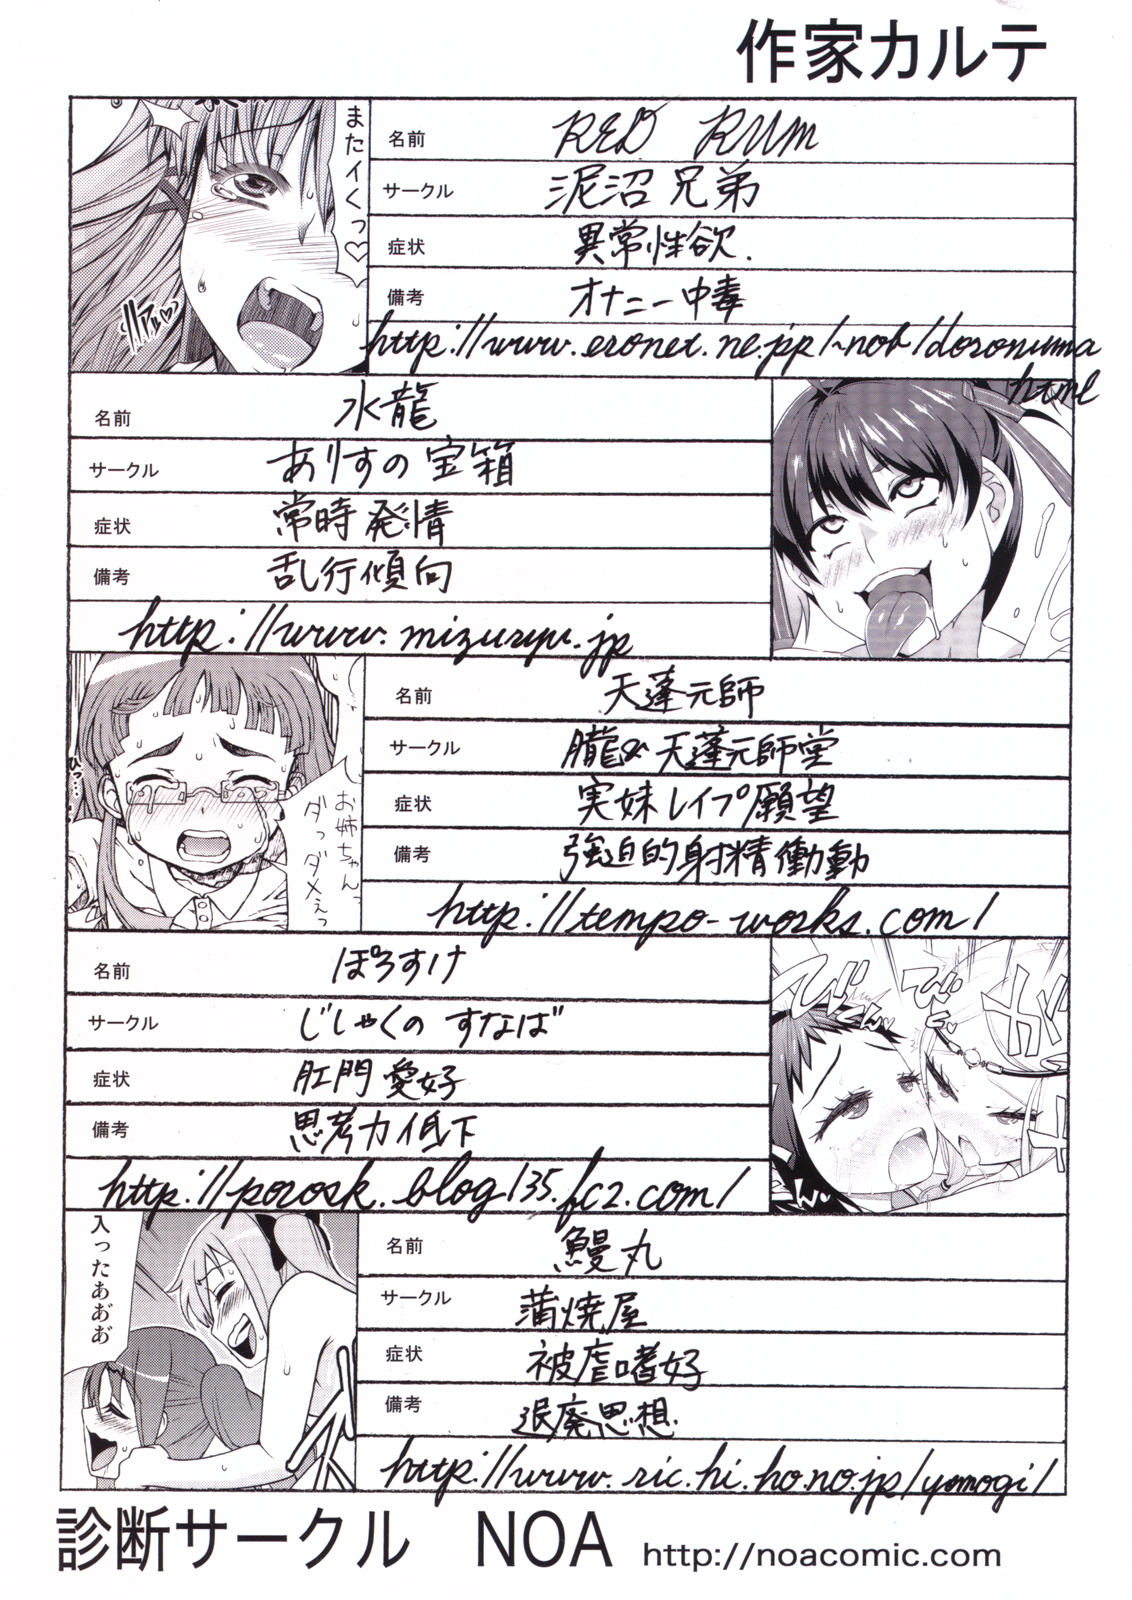 作家カルテ
またイくっ♡
名前 RED RUM
サークル 泥沼兄弟
症状 異常性欲.
備考 オナニー中毒
http://www.eronet.ne.jp/~nob/doronuma
html
名前 水龍
サークル ありすの宝箱
症状 常時発情
備考 乱行傾向
http://www.mizuryu.jp
お姉ちゃんっ
ダっダメぇっ
名前 天蓬元帥
サークル 朧&天蓬元帥堂
症状 実妹レイプ願望
備考 強迫的射精衝動
http://tempo-works.com/
名前 ぽろすけ
サークル じしゃくのすなば
症状 肛門愛好
備考 思考力低下
http://porosk.blog135.fc2.com/
入ったあぢぢ
名前 鰻丸
サークル 蒲焼屋
症状 被虐嗜好
備考 退廃思想.
http://www.ric.hi-ho.ne.jp/yomogi/
診断サークル NOA http://noacomic.com